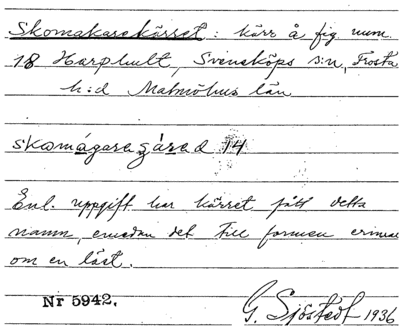 Skomakarekärret: kärr å fig. num.
18 Harphult, Svensköps s:n, Frosta
h:d Malmöhus län
skomágaragàrad 14
Enl. uppgift har kärret fått detta
namn, emedan det till formen erinrar
om en läst.
Nr 5942.
G. Sjöstedt 1936